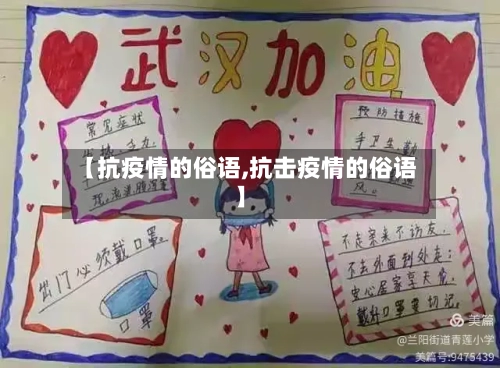 武汉加油
常见症状
预防措施
手卫生
【抗疫情的俗语,抗击疫情的俗语
】
出门必须戴口罩。
口罩
不走亲来不访友,
不去外面到处走;
安心居家享天伦,
戴好口罩要切记。
美篇
@兰阳街道青莲小学
美篇号:9475439